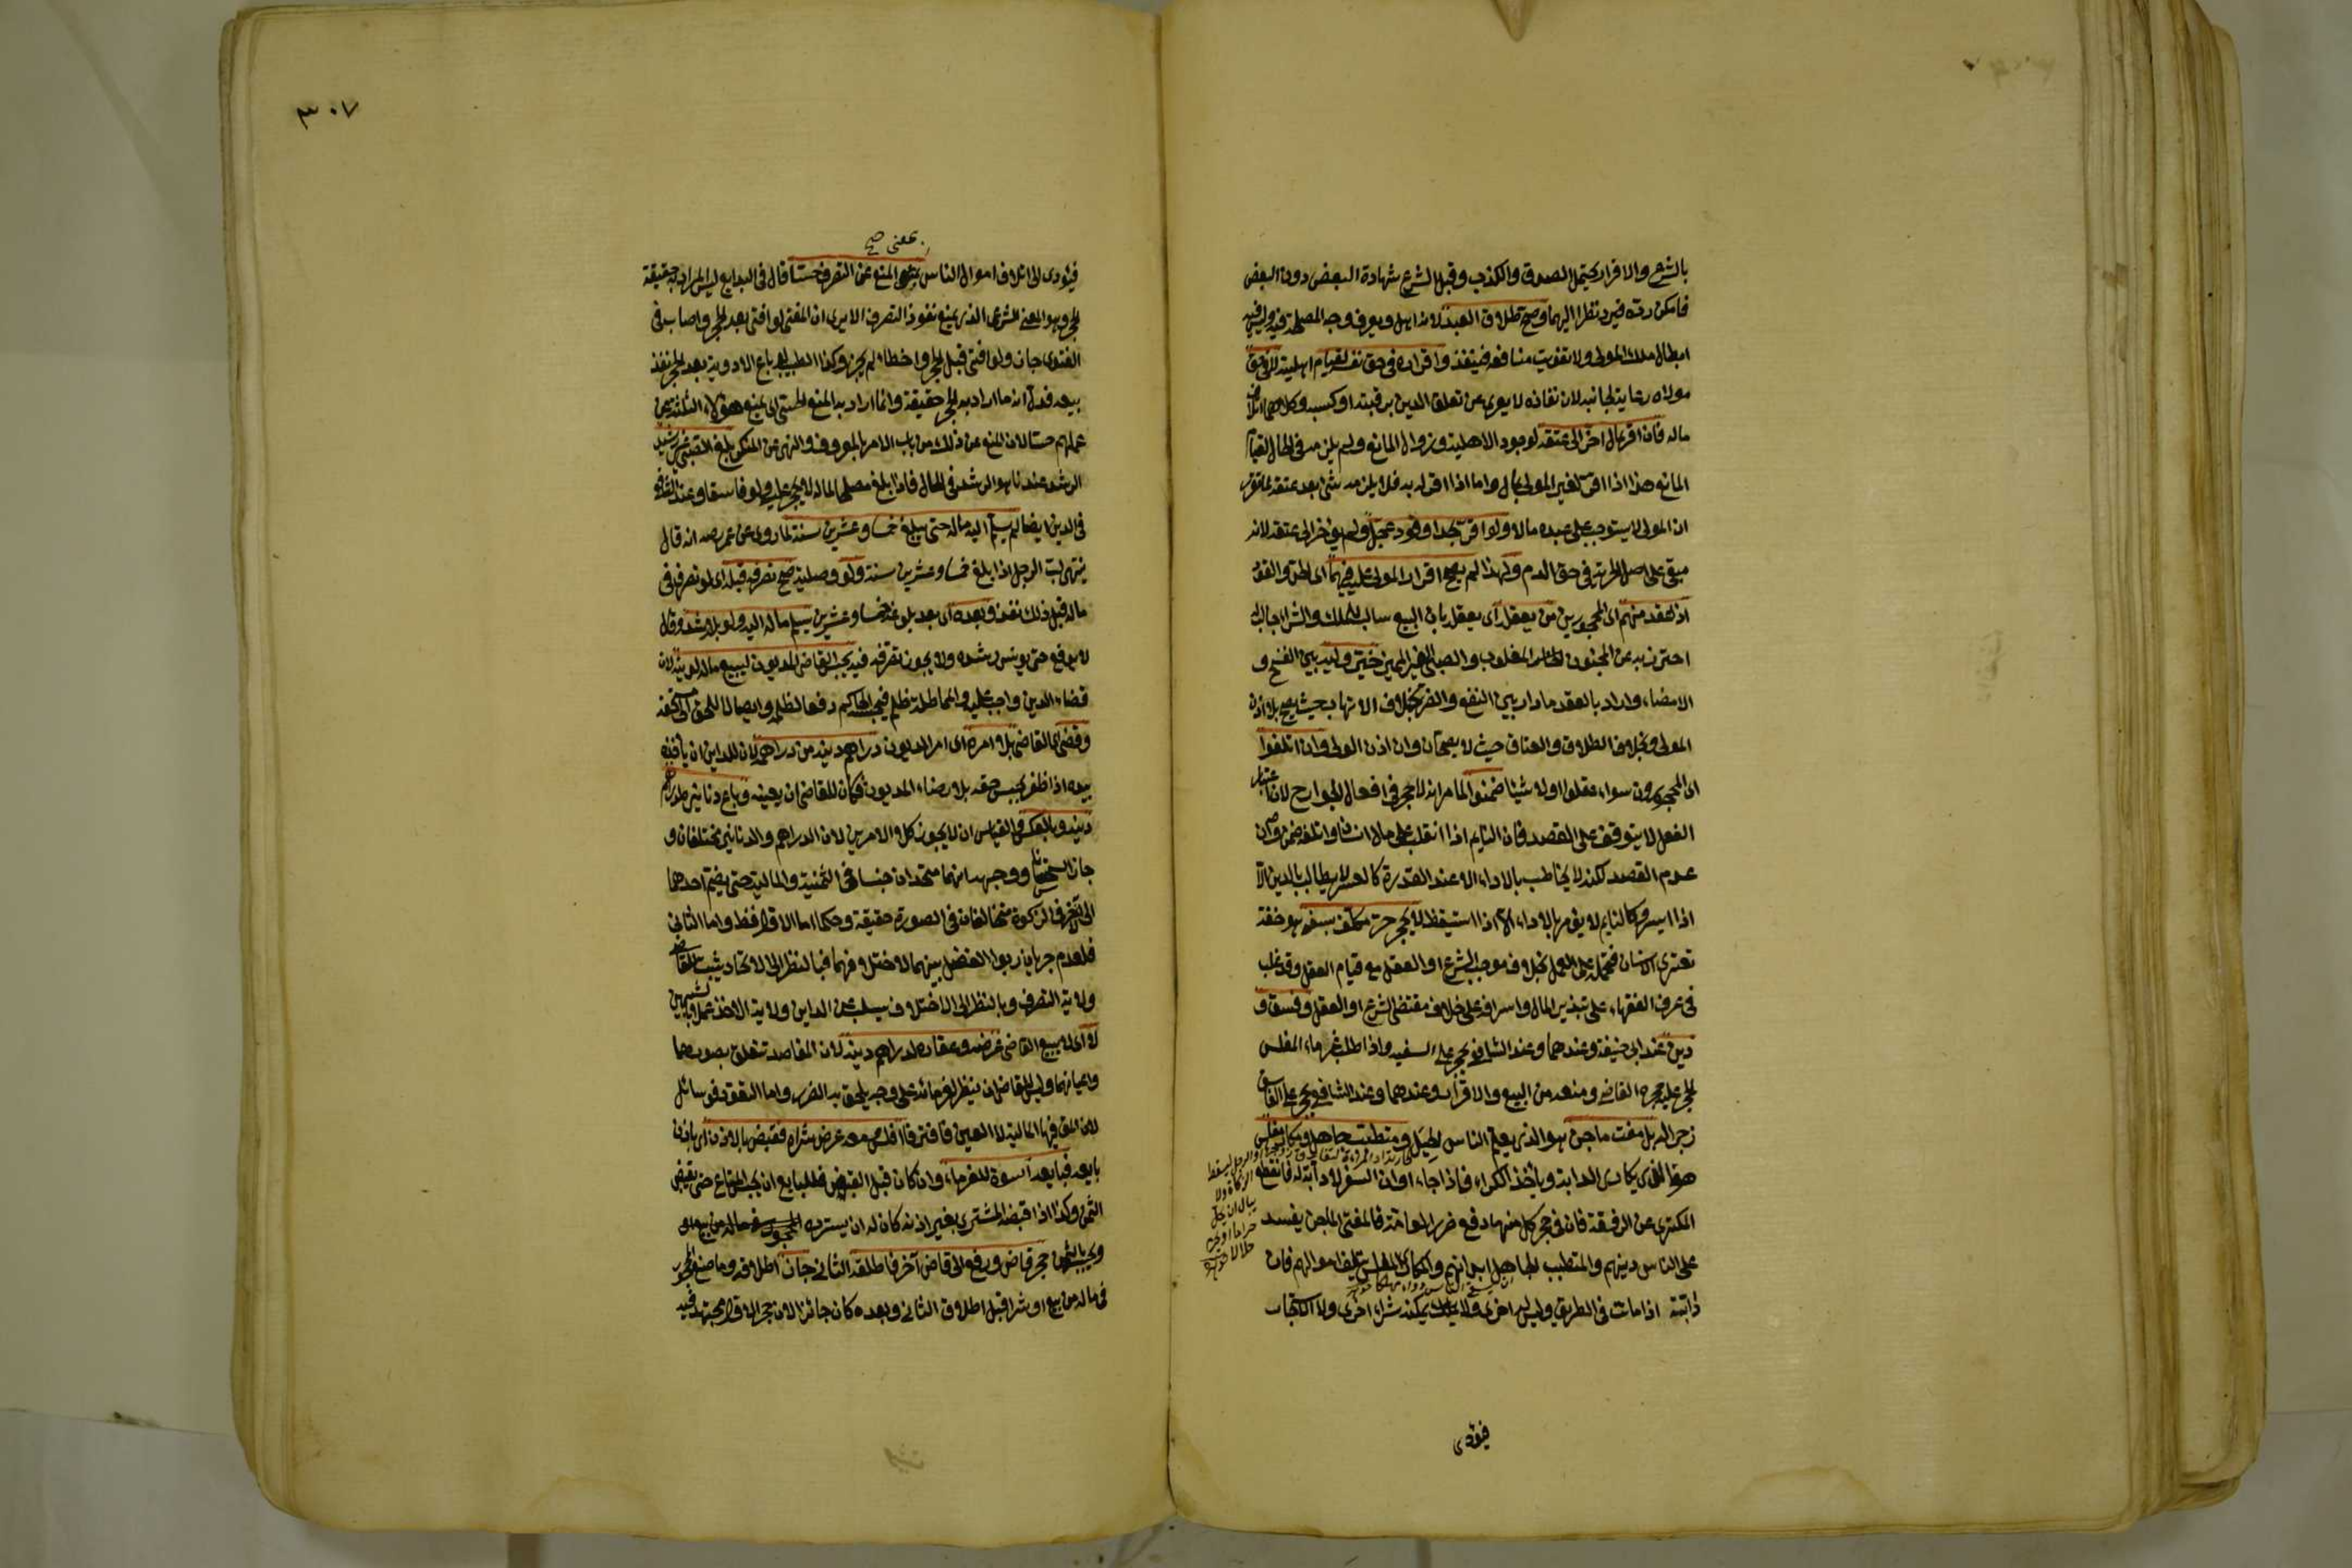 بالشرع والاقرار يحتمل الصدق والكذب وقبل الشرع شهادة البعض دون البعض
فامكن رده فيرد نظرا اليهما وصح طلاق العبد لانه اهل ويعرف وجه المصلحة فيه وليس فيه
ابطال ملك المولى ولا تفويت منافعه فينفذ واقراره في حق نفسه لقيام اهليته لا في حق
مولاه رعاية لجانبه لان نفاذه لا يعرى عن تعلق الدين برقبته او كسبه وكلاهما اتلاف
ماله فان اقر بمال اخر الى عتقه لوجود الاهلية وزوال المانع ولم يلزمه في الحال لقيام
المانع هذا اذا اقر لغير المولى بمال واما اذا اقر له به فلا يلزمه شئ بعد عتقه لما تقرر
ان المولى لا يستوجب على عبده مالا ولو اقر بحد او قود عجل ولم يؤخر الى عتقه لانه
مبقى على اصل الحرية في حق الدم ولهذا لم يصح اقرار المولى عليه فيهما اى الحد والقود
اذ عقد منهم اى المحجورين من يعقل اى يعقل بان البيع سالب للملك والشراء جالب
احترز به عن المجنون المغلوب والصبى الغير المميز خير وليه بين الفسخ و
الامضاء واراد بالعقد ما دار بين النفع والضر بخلاف الاتهاب حيث يصح بلا اذن
المولى وبخلاف الطلاق والعتاق حيث لا يصحان وان اذن الولى وان اتلفوا
اى المحجورون سواء عقلوا او لا شيئا ضمنوا لما مر انه لا حجر في افعال الجوارح لان اعتبار
الفعل لا يتوقف على القصد فان النايم اذا انقلب على مال انسان واتلفه ضمن وان
عدم القصد لكنه لا يخاطب بالاداء الا عند القدرة كالمعسر لا يطالب بالدين الا
اذا ايسر وكالنايم لا يؤمر بالاداء الا اذا استيقظ لا يحجر حر مكلف بسفه هو خفة
تعترى الانسان فتحمله على العمل بخلاف موجب الشرع او العقل مع قيام العقل وقد غلب
في عرف الفقهاء على تبذير المال واسرافه على خلاف مقتضى الشرع او العقل وفسق و
دين عند ابي حنيفة وعندهما وعند الشافعى يحجر على السفيه واذا طلب غرماء المفلس
الحجر عليه حجره القاضي ومنعه من البيع والاقرار وعندهما وعند الشافعى يحجر على الفاسق
زجرا له بل مفت ماجن هو الذى يعلم الناس الحيل ومتطبب جاهل ومكار مفلس
هو الذى يكارى الدابة ويأخذ الكراء فاذا جاء اوان السفر لا دابة له فانقطع
المكترى عن الرفقة فان في حجر كل منها دفع ضرر العامة فالمفتى الماجن يفسد
على الناس دينهم والمتطبب الجاهل ابدانهم والمكارى المفلس يتلف اموالهم فان
دابته اذا ماتت في الطريق وليس له اخرى ولا يمكنه شراء اخرى ولا الاستيجار
فيؤدى
٣٠٧
بمعنى صح
فيؤدى الى اتلاف اموال الناس المنع عن التصرف حسا قال في البدايع ليس المراد به حقيقة
الحجر وهو المعنى الشرعى الذى يمنع نفوذ التصرف الا يرى ان المفتى لو افتى بعد الحجر واصاب في
الفتوى جاز ولو افتى قبل الحجر واخطاء لم يجز وكذا الطبيب لو باع الادوية بعد الحجر نفذ
بيعه فدل انه ما اراد به الحجر حقيقة وانما اراد به المنع الحسى اى يمنع هؤلاء الثلثة عن
عملهم حسا لان المنع عن ذلك من باب الامر بالمعروف والنهى عن المنكر بلغ الصبى غير رشيد
الرشد عندنا هو الرشد في المال فاذا بلغ مصلحا لماله لا يحجر عليه ولو فاسقا وعند الشافعى
في الدين ايضا لم يسلم اليه ماله حتى يبلغ خمسا وعشرين سنة لما روى عن عمر رضه انه قال
ينتهى لب الرجل اذا بلغ خمسا وعشرين سنة ولو وصلية صح تصرفه قبله اى لو تصرف في
ماله قبل ذلك نفذ وبعده اى بعد بلوغه خمسا وعشرين يسلم ماله اليه ولو بلا رشد وقالا
لا يدفع حتى يونس رشده ولا يجوز تصرفه فيه يحبس القاضى المديون ليبيع ماله لدينه لان
قضاء الدين واجب عليه والمماطلة ظلم فيحبسه الحاكم دفعا لظلمه وايصالا للحق الى مستحقه
وقضى اى القاضى بلا امره اى امر المديون دراهم دينه من دراهمه لان للداين ان يأخذ
بيده اذا ظفر بجنس حقه بلا رضاء المديون فكان للقاضى ان يعينه وباع دنانيره لدراهم
دينه وبالعكس والقياس ان لا يجوز كل الامرين لان الدراهم والدنانير مختلفان و
جاز استحسانا ووجهه انهما متحدان جنسا في الثمنية والمالية حتى يضم احدهما
الى الآخر في الزكوة مختلفان في الصورة حقيقة وحكما اما الاول فظ واما الثانى
فلعدم جريان ربوا الفضل بينهما لاختلافهما فبالنظر الى الاتحاد يثبت للقاضى
ولاية التصرف وبالنظر الى الاختلاف يسلب عن الداين ولاية الاخذ عملا بالشبهين
لا اى لا يبيع القاضى عرضه وعقاره لدراهم دينه لان المقاصد تتعلق بصورهما
واعيانهما وليس للقاضى ان ينظر لغرمائه على وجه يلحق به الضرر واما النقود فوسائل
لان المق فيها المالية لا العين فافترقا افلس معه عرض شراه فقبضه بالاذن اى باذن
بايعه فبايعه اسوة للغرماء وان كان قبل القبض فللبايع ان يحبس المتاع حتى يقبض
الثمن وكذا اذا قبضه المشترى بغير اذنه كان له ان يسترده
ويحبسه بالثمن حجر قاض ورفع الى قاض آخر فاطلقه الثانى جاز اطلاقه وما صنع المحجور
في ماله من بيع او شرا قبل اطلاق الثانى وبعده كان جائزا لان حجر الاول مجتهد فيه